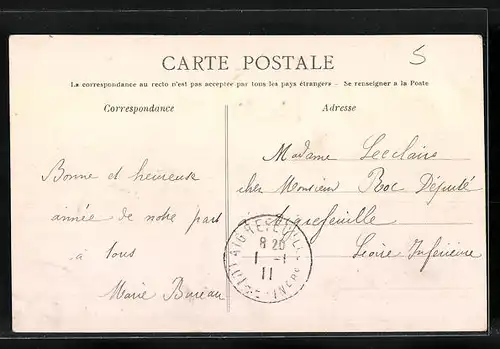 CARTE POSTALE
5
La correspondance au recto n'est pas acceptée par tous les pays étrangers – Se renseigner a la Poste
Correspondance
Adresse
Bonne et heureuse
année de notre part
à tous
Marie Bureau
Madame Leclair
chez Monsieur Boc Député
Aigrefeuille
Loire Inférieure
AIGREFEUILLE
8 20
1 -1
11
LOIRE-INFRE